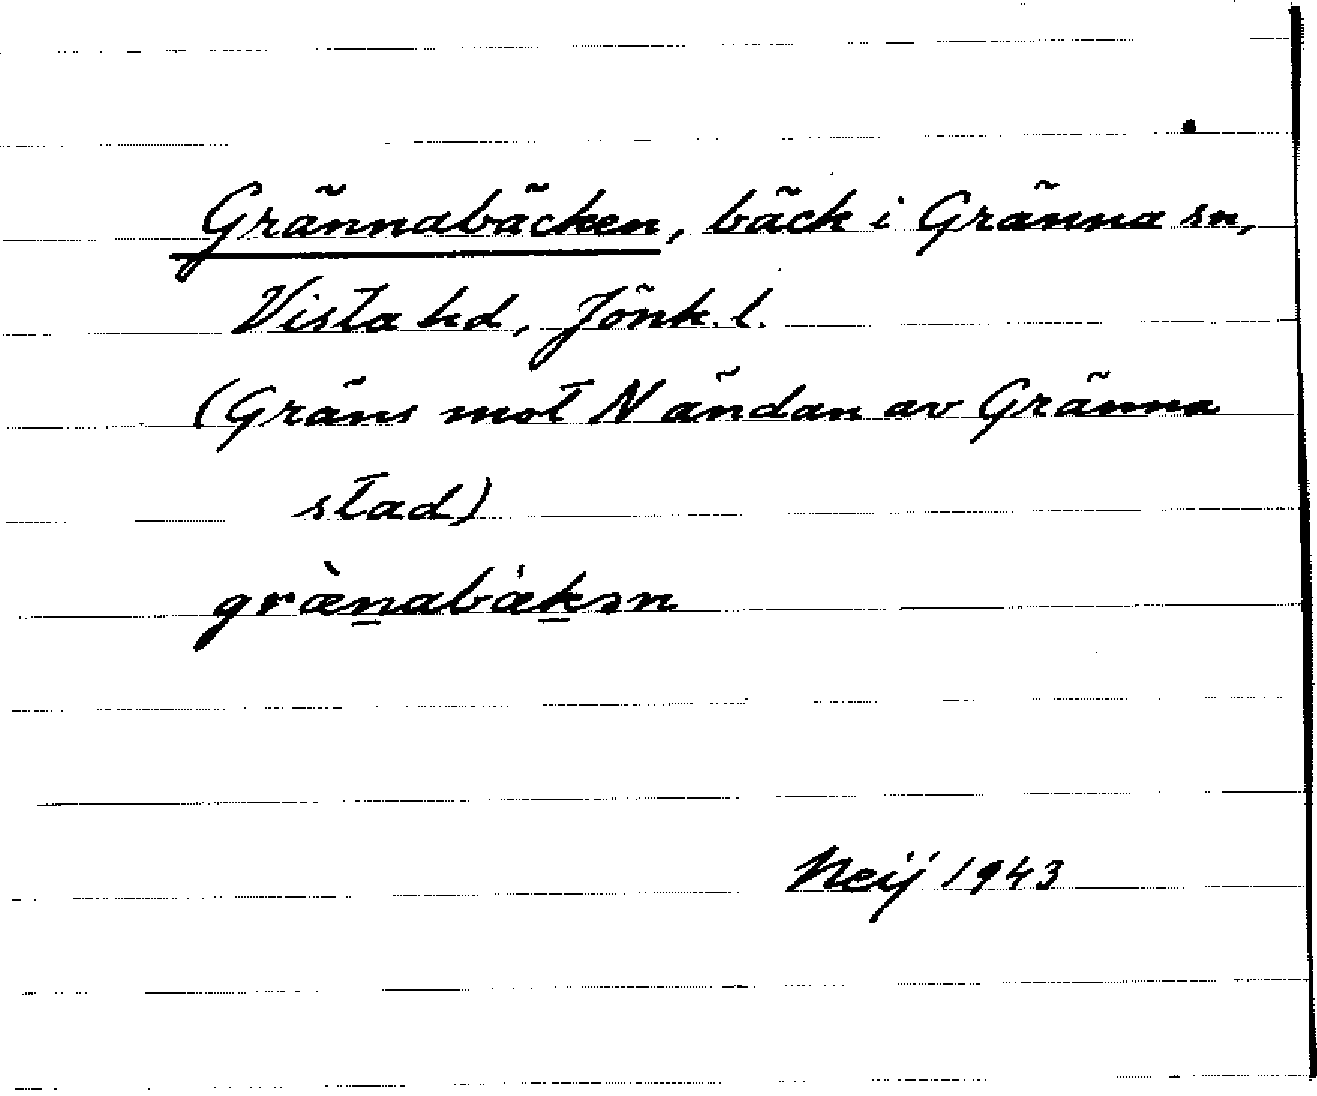 Grännabäcken, bäck i Gränna sn,
Vista hd, Jönk. l.
(Gräns mot N ändan av Gränna
stad)
græ̀n̲abæ̍k̲ən
Neij 1943